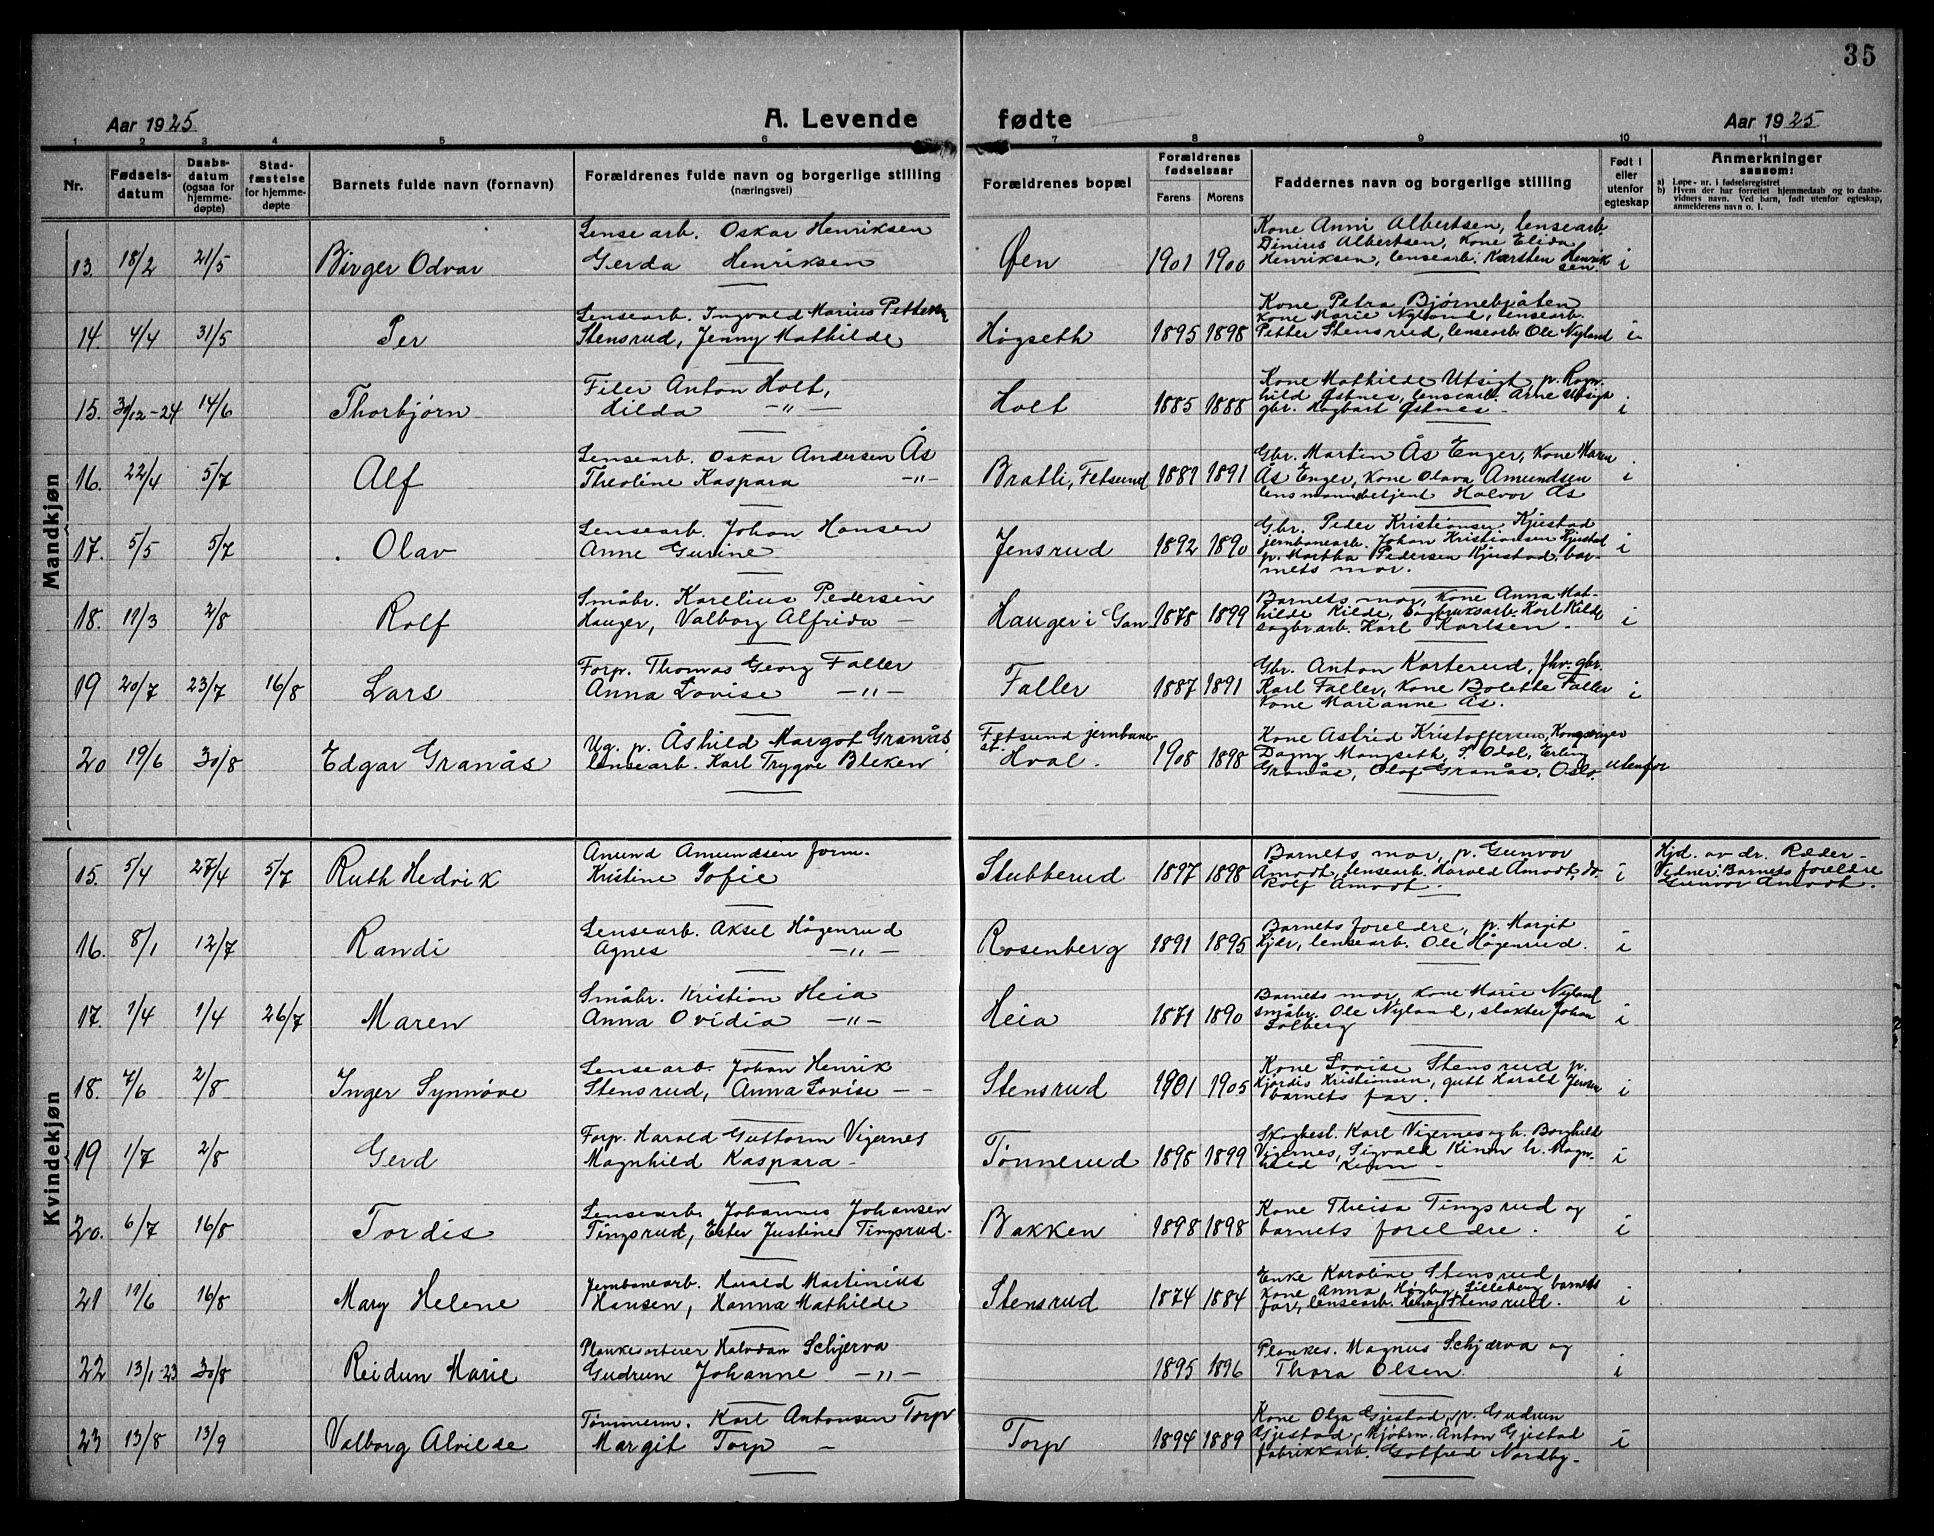 35
Aar 1925 A. Levende fødte Aar 1925
1 2 3 4 5 6 7 8 9 10 11
Nr. Fødsels-datum Daabs-datum (ogsaa for hjemme-døpte) Stad-fæstelse for hjemme-døpte Barnets fulde navn (fornavn) Forældrenes fulde navn og borgerlige stilling (næringsvei) Forældrenes bopæl Forældrenes fødselsaar Farens Morens Faddernes navn og borgerlige stilling Født i eller utenfor egteskap Anmerkninger saasom:
a) Løpe-nr. i fødselsregistret
b) Hvem der har forrettet hjemmedaab og to daabs-vidners navn. Ved barn, født utenfor egteskap, anmelderens navn o. l.
Mandkjøn
13. 18/2 21/5 Birger Odvar Lensearb. Oskar Henriksen
Gerda Henriksen Øen 1901 1900 Kone Anni Albertsen, lensearb.
Dinius Albertsen, Kone Elida
Henriksen, lensearb. Karsten Henrik
sen. i
14. 4/4 31/5 Per Lensearb. Ingvald Marius Pettersen
Stensrud, Jenny Mathilde Høgseth 1895 1898 Kone Petra Bjørnebråten
Kone Marie Nyland, lensearb.
Petter Stensrud, lensearb. Ole Nyland i
15. 30/12-24 14/6 Thorbjørn Filer Anton Holt,
Hilda —„— Holt 1885 1888 Kone Mathilde Utsigt, p. Ragn-
hild Østnes, lensearb. Arne Utsigt
gbr. Hagbart Østnes - i
16. 22/4 5/7 Alf Lensearb. Oskar Andersen Ås
Theoline Kaspara -„- Bratli, Fetsund 1889 1891 Gbr. Martin Ås Enger, Kone Maren
Ås Enger, Kone Olava Amundsen
lensmannbetjent Halvor Ås i
17. 5/5 5/7 Olav Lensearb. Johan Hansen
Anne Gurine Jensrud 1892 1890 Gbr. Peder Kristiansen Kjustad
jernbanearb. Johan Kristiansen Kjustad
p. Martha Pedersen Kjustad, bar-
nets mor. i
18. 19/3 2/8 Rolf Småbr. Karelius Pedersen
Hauger, Valborg Alfrida - Hauger i Gan 1878 1899 Barnets mor, Kone Anna Mat-
hilde Kilde, sagbruksarb. Karl Kilde
sagbrarb. Karl Karlsen. i
19 20/7 23/7 16/8 Lars Forp. Thomas Georg Faller
Anna Lovise —„— Faller 1887 1891 Gbr. Anton Karterud, fhv. gbr.
Karl Faller, Kone Bolette Faller
Kone Marianne Ås. i
20 19/6 30/8 Edgar Granås Ug. p. Åshild Margot Granås,
lensearb. Karl Trygve Bleken Fetsund jernbane-
st. Hval. 1908 1898 Kone Astrid Kristoffersen, Kongsvinger
Dagny Mangseth, S. Odal, Erling
Granås, Olaf Granås, Oslo. utenfor
Kvindekjøn
15. 5/4 27/4 5/7 Ruth Hedvik Amund Amundsen form.
Kristine Sofie Stubberud 1897 1898 Barnets mor, p. Gunvor
Amodt, lensearb. Harald Amodt, do
Rolf Amodt. i Hjd. av dr. Ræder -
Vidner: Barnets foreldre
Gunvor Amodt.
16. 8/1 12/7 Randi Lensearb. Aksel Høgenrud
Agnes —„— Rosenberg 1891 1895 Barnets foreldre, p. Margit
Kjær, lensearb. Ole Høgenrud. i
17. 1/4 1/4 26/7 Maren Småbr. Kristian Heia
Anna Ovidia —„— Heia 1871 1890 Barnets mor, Kone Marie Nyland
småbr. Ole Nyland, slakter Johan
Solberg i
18. 7/6 2/8 Inger Synnøve Lensearb. Johan Henrik
Stensrud, Anna Lovise — Stensrud 1901 1905 Kone Lovise Stensrud p.
Hjørdis Kristiansen, gutt Harald Jensen
barnets far. i
19 1/7 2/8 Gerd Forp. Harald Guttorm Vigernes
Magnhild Kaspara - Tønnerud 1898 1899 Skogbest. Karl Vigernes og h. Borghild
Vigernes, Sigvald Kinn h. Magn-
hild Kinn - i
20. 6/7 16/8 Tordis Lensearb. Johannes Johansen
Tingsrud, Ester Justine Tingsrud. Bakken 1898 1898 Kone Theisa Tingsrud og
barnets foreldre. i
21 11/6 16/8 Mary Helene Jernbanearb. Harald Martinius
Hansen, Hanna Mathilde Stensrud 1874 1884 Enke Karoline Stensrud
Kone Anna Høgby, Lilleberg, barnets
far, lensearb. Stensrud. i
22 13/1-23 30/8 Reidun Marie Plankesorterer Halvdan Schjerva
Gudrun Johanne —„— 1895 1896 Plankes. Magnus Schjærva og
Thora Olsen. i
23 13/8 13/9 Valborg Alvilde Tømmerm. Karl Antonsen Torp
Margit Torp - Torp 1894 1889 Kone Olga Gjestad, p. Gudrun
Gjestad, Anton Gjestad
fabrikkarb. Gotfred Nordby. i